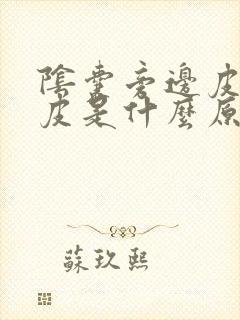 陰囊旁邊皮
皮是什麼原
蘇玖熙